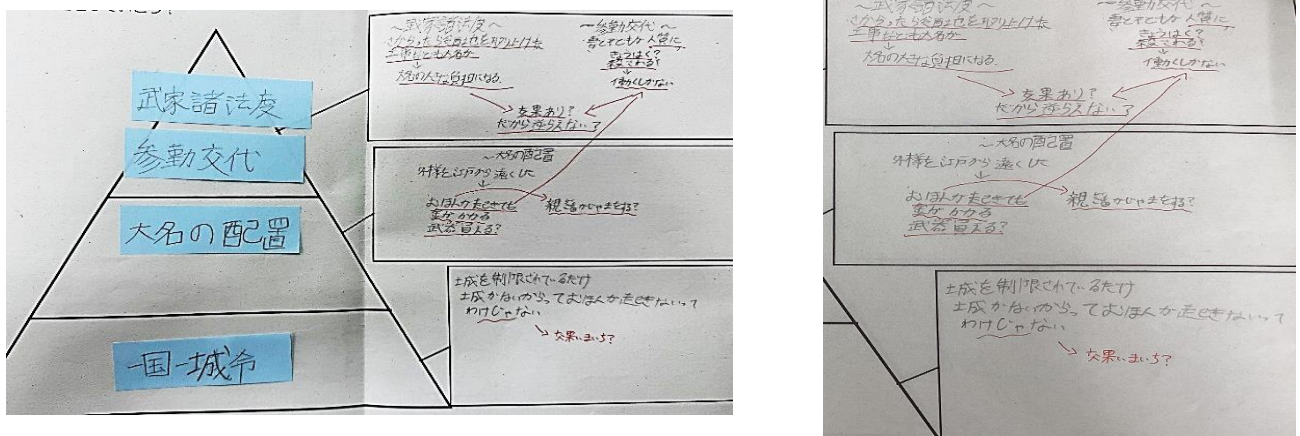 武家諸法度
参勤交代
大名の配置
一国一城令
〜武家諸法度〜
さからったら領地を取り上げた
工事なども大名が
↓
大名の大きな負担になる。
〜参勤交代〜
妻と子どもが人質に
きょうはく?
殺される?
↓
働くしかない
効果あり?
だから逆らえない?
〜大名の配置
外様を江戸から遠くした
↓
おはんが起きても
金がかかる
武器買える?
親藩がじゃまをする?
城を制限されているだけ
城がないからっておはんが起きないって
わけじゃない
→効果いまいち?
さからったら領地を取り上げた
工事なども大名が
↓
大名の大きな負担になる。
〜参勤交代〜
妻と子どもが人質に
きょうはく?
殺される?
↓
働くしかない
効果あり?
だから逆らえない?
〜大名の配置
外様を江戸から遠くした
↓
おはんが起きても
金がかかる
武器買える?
親藩がじゃまをする?
城を制限されているだけ
城がないからっておはんが起きないって
わけじゃない
→効果いまいち?